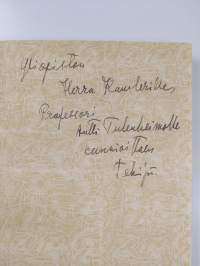 Yliopiston
Herra Kanslerille,
Professori
Antti Tulenheimolle
kunnioittaen
Tekijä.